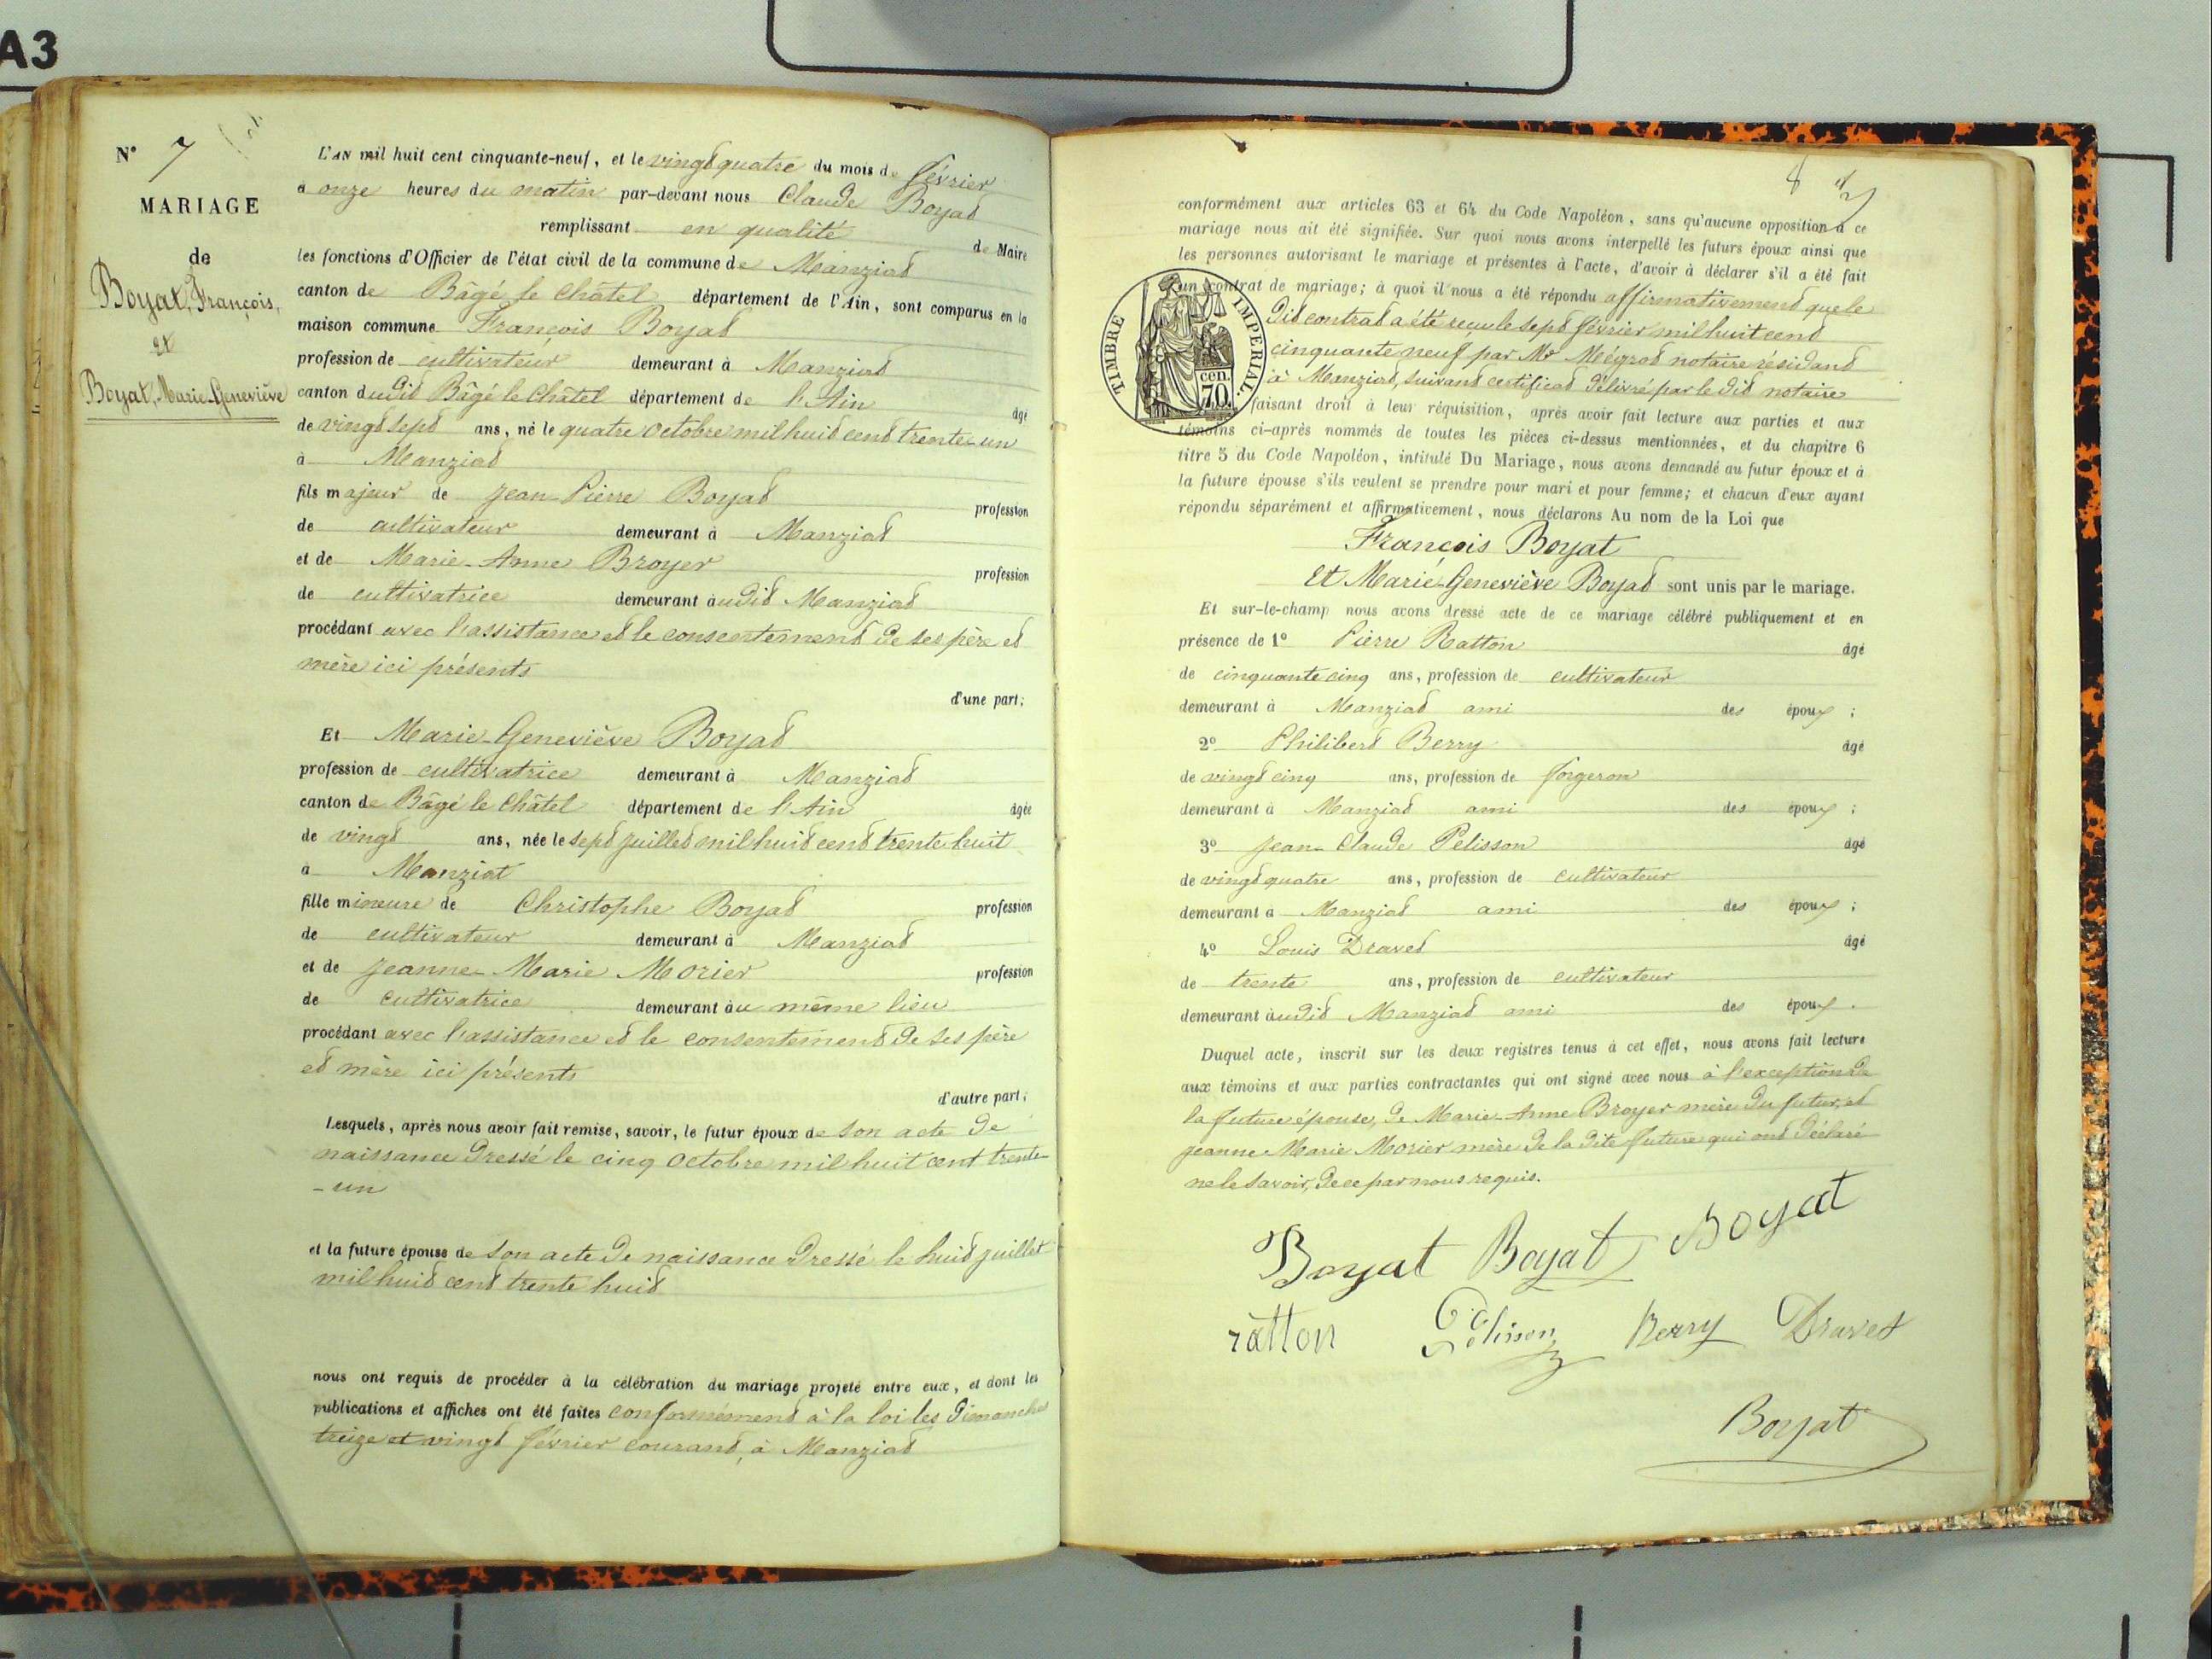 A3
N° 7
MARIAGE
de
Boyat, François,
et
Boyat, Marie-Geneviève
L'AN mil huit cent cinquante-neuf, et le vingt quatre du mois de février
à onze heures du matin par-devant nous Claude Boyat
remplissant en qualité de Maire
les fonctions d'Officier de l'état civil de la commune de Manziat
canton de Bâgé le Châtel département de l'Ain, sont comparus en la
maison commune François Boyat
profession de cultivateur demeurant à Manziat
canton dudit Bâgé le Châtel département de l'Ain âgé
de vingt sept ans, né le quatre octobre mil huit cent trente-un
à Manziat
fils majeur de Jean-Pierre Boyat profession
de cultivateur demeurant à Manziat
et de Marie-Anne Broyer profession
de cultivatrice demeurant audit Manziat
procédant avec l'assistance et le consentement de ses père et
mère ici présents
d'une part;
Et Marie-Geneviève Boyat
profession de cultivatrice demeurant à Manziat
canton de Bâgé le Châtel département de l'Ain âgée
de vingt ans, née le sept juillet mil huit cent trente-huit
à Manziat
fille mineure de Christophe Boyat profession
de cultivateur demeurant à Manziat
et de Jeanne-Marie Morier profession
de cultivatrice demeurant au même lieu
procédant avec l'assistance et le consentement de ses père
et mère ici présents
d'autre part;
Lesquels, après nous avoir fait remise, savoir, le futur époux de son acte de
naissance dressé le cinq octobre mil huit cent trente-
-un
et la future épouse de son acte de naissance dressé le huit juillet
mil huit cent trente huit
nous ont requis de procéder à la célébration du mariage projeté entre eux, et dont les
publications et affiches ont été faites conformément à la loi les dimanches
treize et vingt février courant, à Manziat
8
conformément aux articles 63 et 64 du Code Napoléon, sans qu'aucune opposition à ce
mariage nous ait été signifiée. Sur quoi nous avons interpellé les futurs époux ainsi que
les personnes autorisant le mariage et présentes à l'acte, d'avoir à déclarer s'il a été fait
un contrat de mariage; à quoi il nous a été répondu affirmativement que le
dit contrat a été reçu le sept février mil huit cent
cinquante neuf par Me Mégrot notaire résidant
à Manziat, suivant certificat délivré par le dit notaire
TIMBRE IMPERIAL.
cen.
70.
faisant droit à leur réquisition, après avoir fait lecture aux parties et aux
témoins ci-après nommés de toutes les pièces ci-dessus mentionnées, et du chapitre 6
titre 5 du Code Napoléon, intitulé Du Mariage, nous avons demandé au futur époux et à
la future épouse s'ils veulent se prendre pour mari et pour femme; et chacun d'eux ayant
répondu séparément et affirmativement, nous déclarons Au nom de la Loi que
François Boyat
Et Marie-Geneviève Boyat sont unis par le mariage.
Et sur-le-champ nous avons dressé acte de ce mariage célébré publiquement et en
présence de 1° Pierre Ratton âgé
de cinquante cinq ans, profession de cultivateur
demeurant à Manziat ami des époux;
2° Philibert Berry âgé
de vingt cinq ans, profession de forgeron
demeurant à Manziat ami des époux;
3° Jean-Claude Pelisson âgé
de vingt quatre ans, profession de cultivateur
demeurant à Manziat ami des époux;
4° Louis Dravet âgé
de trente ans, profession de cultivateur
demeurant audit Manziat ami des époux.
Duquel acte, inscrit sur les deux registres tenus à cet effet, nous avons fait lecture
aux témoins et aux parties contractantes qui ont signé avec nous à l'exception de
la future épouse, de Marie-Anne Broyer mère du futur, et
Jeanne-Marie Morier mère de la dite future qui ont déclaré
ne le savoir, de ce par nous requis.
Boyat Boyat Boyat
ratton Pélisson Berry Dravet
Boyat